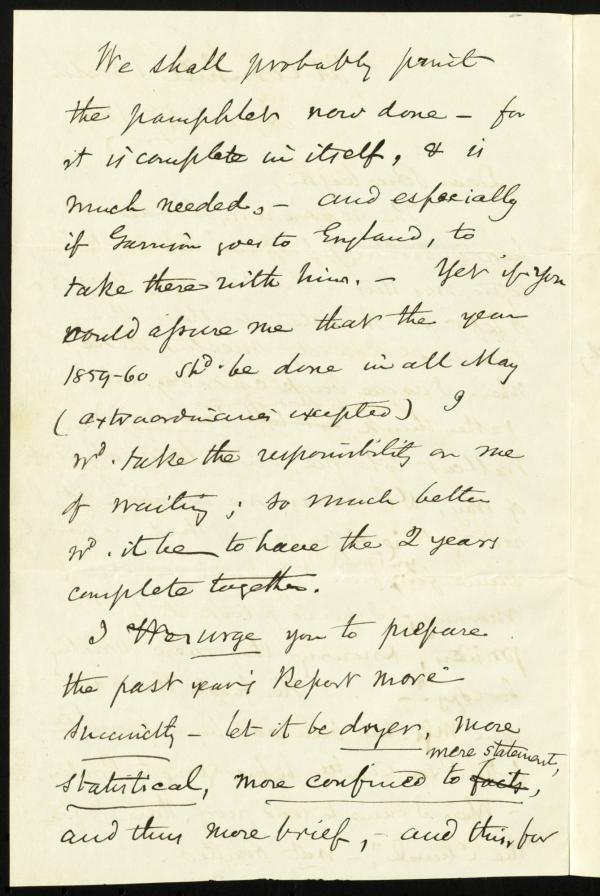 We shall probably print
the pamphlet now done – for
it is complete in itself, & is
much needed, – and especially
if Garrison goes to England, to
take there with him. – Yet if you
could assure me that the year
1859-60 shd. be done in all May
(extraordinaries excepted) I
wd. take the responsibility on me
of waiting; so much better
wd. it be to have the 2 years
complete together.
I urge you to prepare
the past year's Report more
succinctly – let it be dryer, more
mere statement,
statistical, more confined to facts,
and thus more brief, – and this, for